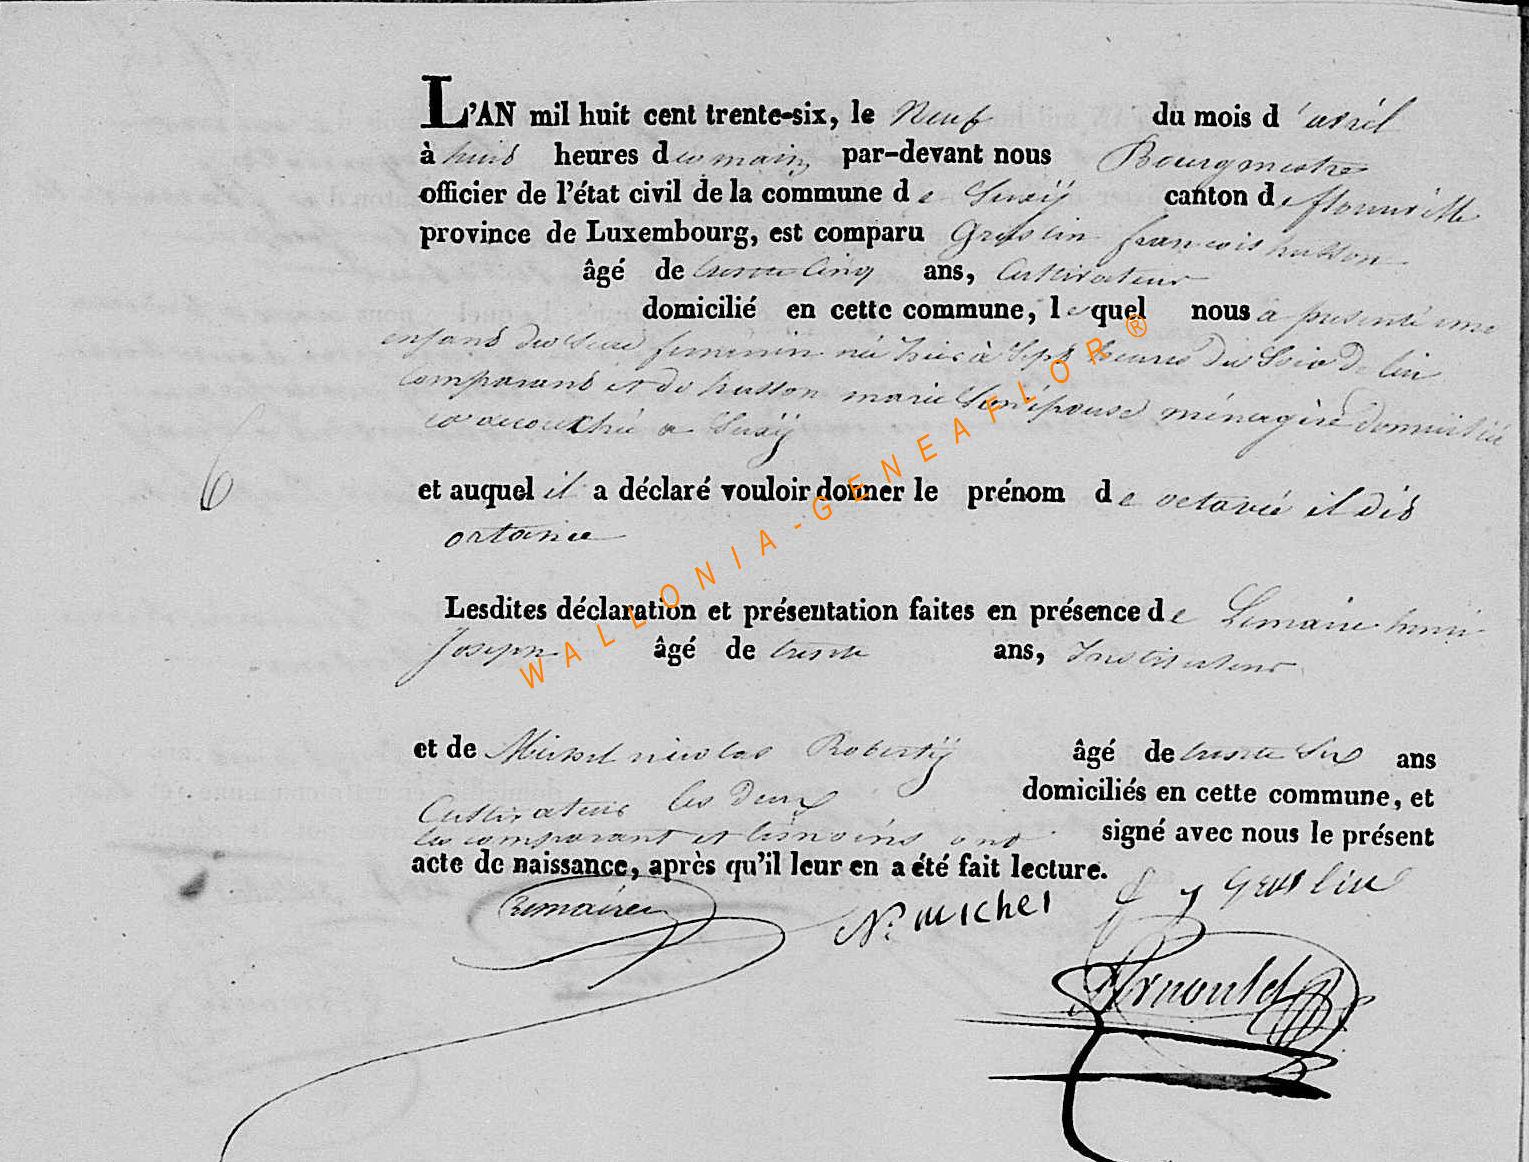 L'AN mil huit cent trente-six, le Neuf du mois d'avril
à huit heures du matin par-devant nous Bourgmestre
officier de l'état civil de la commune de Suxÿ canton de florenville
province de Luxembourg, est comparu Groslin françois husson
âgé de trente cinq ans, Cultivateur
domicilié en cette commune, lequel nous a presenté une
enfant du sexe feminin née hier à Sept heures du Soir De lui
comparant et de husson marie Son épouse ménagère domiciliée
et accouchée a Suxÿ
6
et auquel il a déclaré vouloir donner le prénom de octavie il dit
ortance
Lesdites déclaration et présentation faites en présence de Lemaire henri
Joseph âgé de trente ans, Instituteur
et de Michel nicolas Robertÿ âgé de trente Six ans
Cultivateur les deux domiciliés en cette commune, et
les comparant et témoins ont signé avec nous le présent
acte de naissance, après qu'il leur en a été fait lecture.
Lemaire N. michel
Arnould
WALLONIA-GENEAFLOR®